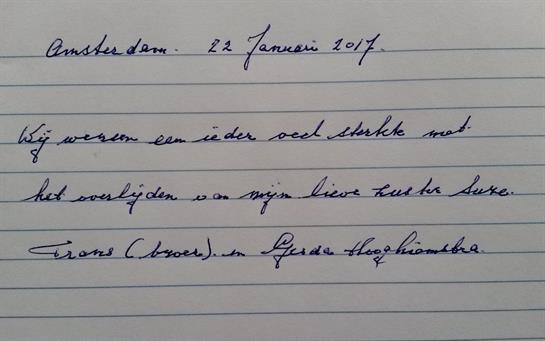 Amsterdam. 22 Januari 2017.
Wij wensen een ieder veel sterkte met
het overlijden van mijn lieve zuster Suze.
Frans (broer). en Gerda